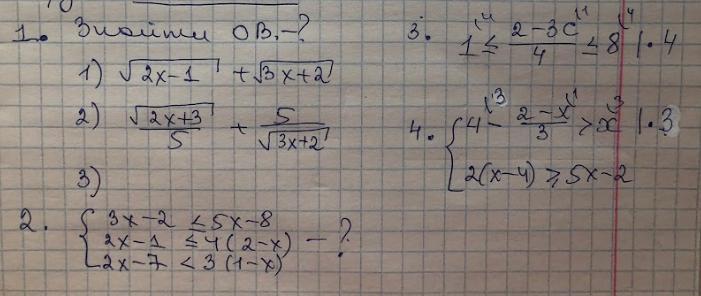 1. Знайти ОВ.-?
1) √2x-1 + √3x+2
2) √2x+3/5 + 5/√3x+2
3)
2. { 3x-2 ≤ 5x-8
2x-1 ≤ 4(2-x) - ?
2x-7 < 3(1-x)
3. 1 ≤ (2-3C)/4 ≤ 8 |·4
4. { 4 - (2-x)/3 > x |·3
2(x-4) ≥ 5x-2